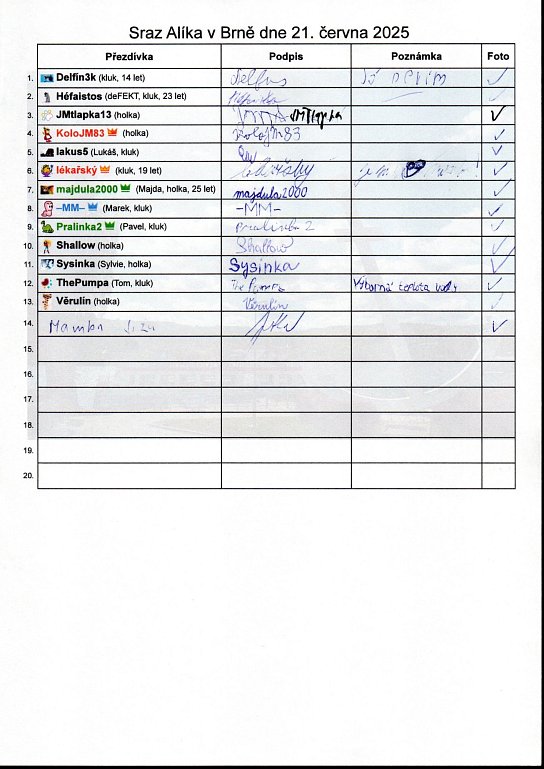 Sraz Alíka v Brně dne 21. června 2025
Přezdívka Podpis Poznámka Foto
1. Delfín3k (kluk, 14 let) ✓
2. Héfaistos (deFEKT, kluk, 23 let) Héfaistos ✓
3. JMtlapka13 (holka) JMTlapka ✓
4. KoloJM83 (holka) KoloJM83 ✓
5. lakus5 (Lukáš, kluk) ✓
6. lékařský (kluk, 19 let) lékařský ✓
7. majdula2000 (Majda, holka, 25 let) majdula2000 ✓
8. –MM– (Marek, kluk) –MM– ✓
9. Pralinka2 (Pavel, kluk) Pralinka 2 ✓
10. Shallow (holka) Shallow ✓
11. Sysinka (Sylvie, holka) Sysinka ✓
12. ThePumpa (Tom, kluk) The Pumpa Výborná teplota vody ✓
13. Věrulín (holka) Věrulín ✓
14. Mamba ✓
15.
16.
17.
18.
19.
20.